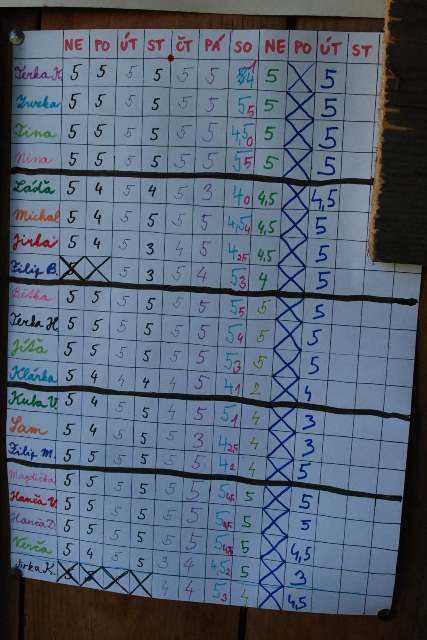 NE PO ÚT ST ČT PÁ SO NE PO ÚT ST
Terka K. 5 5 5 5 5 5 5 5
Zuzka 5 5 5 5 5 5 55 5 5
Tina 5 5 5 5 5 5 4,50 5 5
Nina 5 5 5 5 5 5 55 5 5
Láďa 5 4 5 4 5 3 40 4,5 4,5
Michal 5 4 5 5 5 5 4,5 4,5 5
Jirka 5 4 5 3 4 5 4 4,5 5
Filip B. 5 3 5 4 53 4 5
Bětka 5 5 5 5 5 5 55 5 5
Terka H. 5 5 5 5 5 5 54 5 5
Jíťa 5 5 5 5 5 5 53 5 5
Klárka 5 4 4 4 4 5 41 2 4
Kuba V. 5 4 5 5 4 5 51 4 3
Sam 5 4 5 5 5 3 4 4 3
Filip M. 5 5 5 5 5 5 4 4 5
Magdička 5 5 5 5 5 5 5 5 5
Hanča V. 5 5 5 5 5 5 5 5 5
Hanča D. 5 5 5 5 5 5 5 5 4,5
Verča 5 4 5 5 3 4 4,5 5 3
Jirka K. 4 4 53 4 4,5